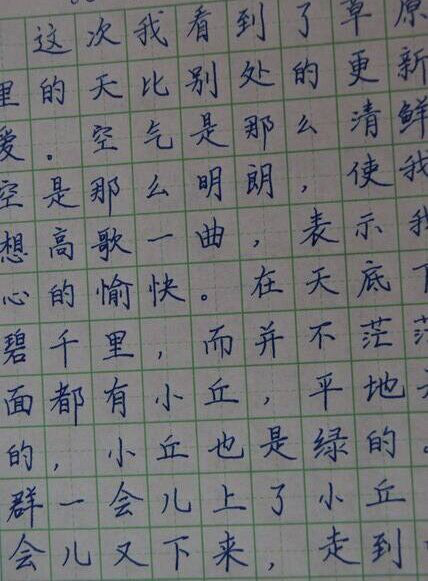 这次我看到了草原
里的天比别处的更新
爱。空气是那么清鲜
空是那么明朗，使我
想高歌一曲，表示我
心的愉快。在天底下
碧千里，而并不茫茫
面都有小丘，平地
的，小丘也是绿的。
群一会儿上了小丘
会儿又下来，走到